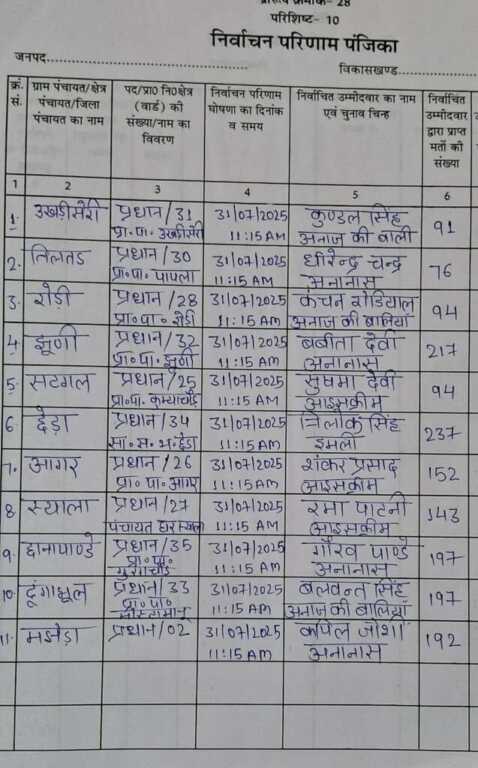 प्रारूप क्रमांक- 28
परिशिष्ट- 10
निर्वाचन परिणाम पंजिका
जनपद
विकासखण्ड
क्र. सं. ग्राम पंचायत/क्षेत्र पंचायत/जिला पंचायत का नाम पद/प्रा0 नि0क्षेत्र (वार्ड) की संख्या/नाम का विवरण निर्वाचन परिणाम घोषणा का दिनांक व समय निर्वाचित उम्मीदवार का नाम एवं चुनाव चिन्ह निर्वाचित उम्मीदवार द्वारा प्राप्त मतों की संख्या
1 2 3 4 5 6
1. उखड़ीसेरी प्रधान/31 31/07/2025 कुण्डल सिंह 91
प्रा.पा. उखड़ीसेरी 11:15 AM अनाज की बाली
2. तिलतड प्रधान/30 31/07/2025 धीरेन्द्र चन्द्र 76
प्रा०पा० पापला 11:15 AM अनानास
3. शेडी प्रधान/28 31/07/2025 कंचन शेडियाल 94
प्रा०पा० शेडी 11:15 Am अनाज की बालियां
4. झूणी प्रधान/32 31/07/2025 बबीता देवी 217
प्रा०पा. झूणी 11:15 AM अनानास
5. सटगल प्रधान/25 31/07/2025 सुषमा देवी 94
प्रा०पा. 11:15 AM आइसक्रीम
6. देड़ा प्रधान/34 31/07/2025 त्रिलोक सिंह 237
11:15 AM इमली
7. आगर प्रधान/26 31/07/2025 शंकर प्रसाद 152
प्रा० पा० आगर 11:15 AM आइसक्रीम
8 स्याला प्रधान/27 31/07/2025 रमा पाटनी 143
पंचायत घर स्याला 11:15 AM आइसक्रीम
9. प्रधान/35 31/07/2025 गौरव पाण्डे 197
प्रा०पा० 11:15 AM अनानास
10. प्रधान/33 31/07/2025 बलवन्त सिंह 197
प्रा०पा० 11:15 AM अनाज की बालियाँ
11. मझेड़ा प्रधान/02 31/07/2025 कपिल जोशी 192
11:15 AM अनानास